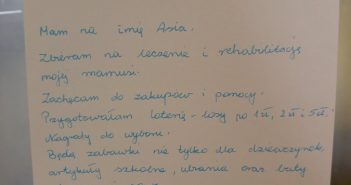 Mam na imię Asia.
Zbieram na leczenie i rehabilitację
mojej mamusi.
Zachęcam do zakupów i pomocy.
Przygotowałam loterię - losy po 1 zł, 2 zł i 5 zł.
Nagrody do wyboru.
Będą zabawki nie tylko dla dziewczynek,
artykuły szkolne, ubrania oraz buty